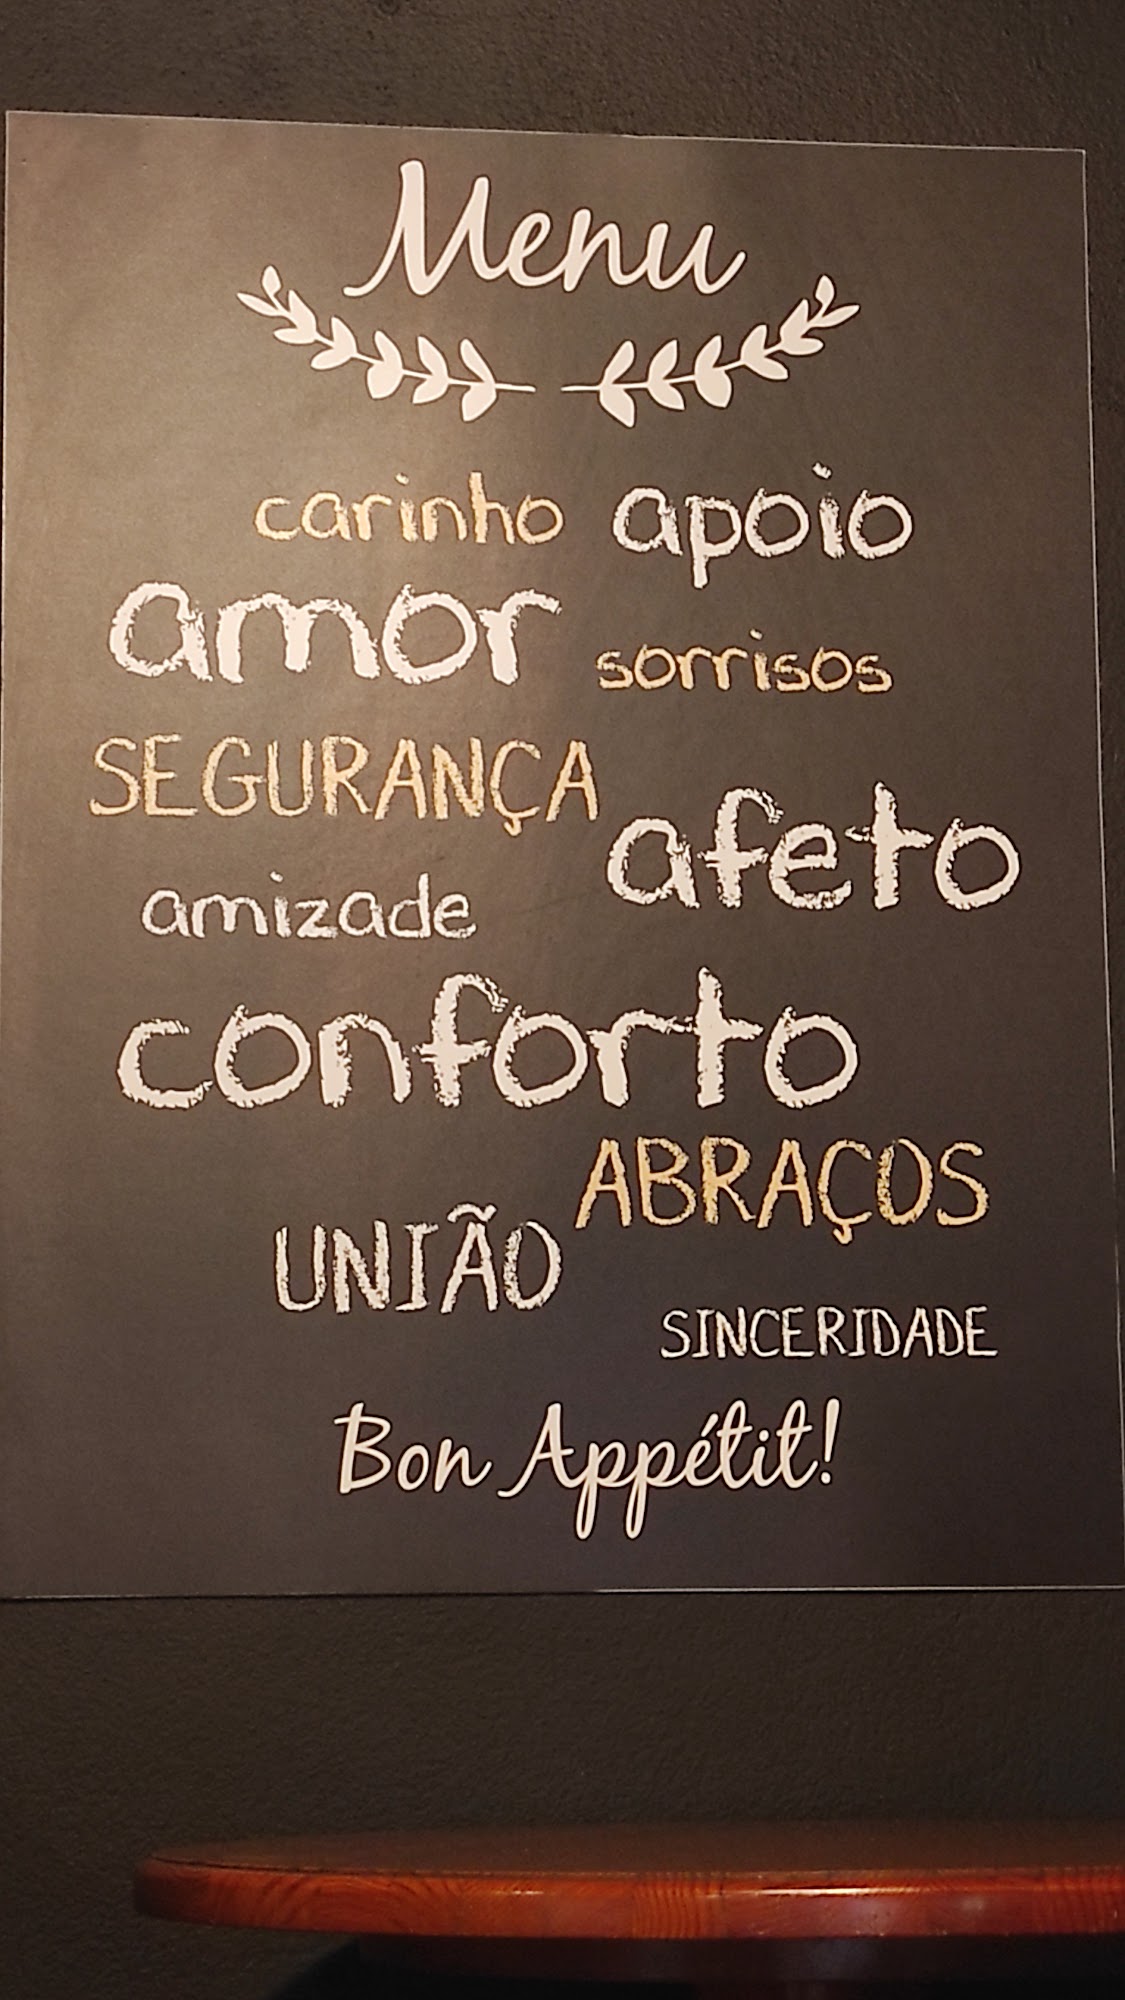 Menu
carinho apoio
amor sorrisos
SEGURANÇA
afeto
amizade
conforto
ABRAÇOS
UNIÃO
SINCERIDADE
Bon Appétit!